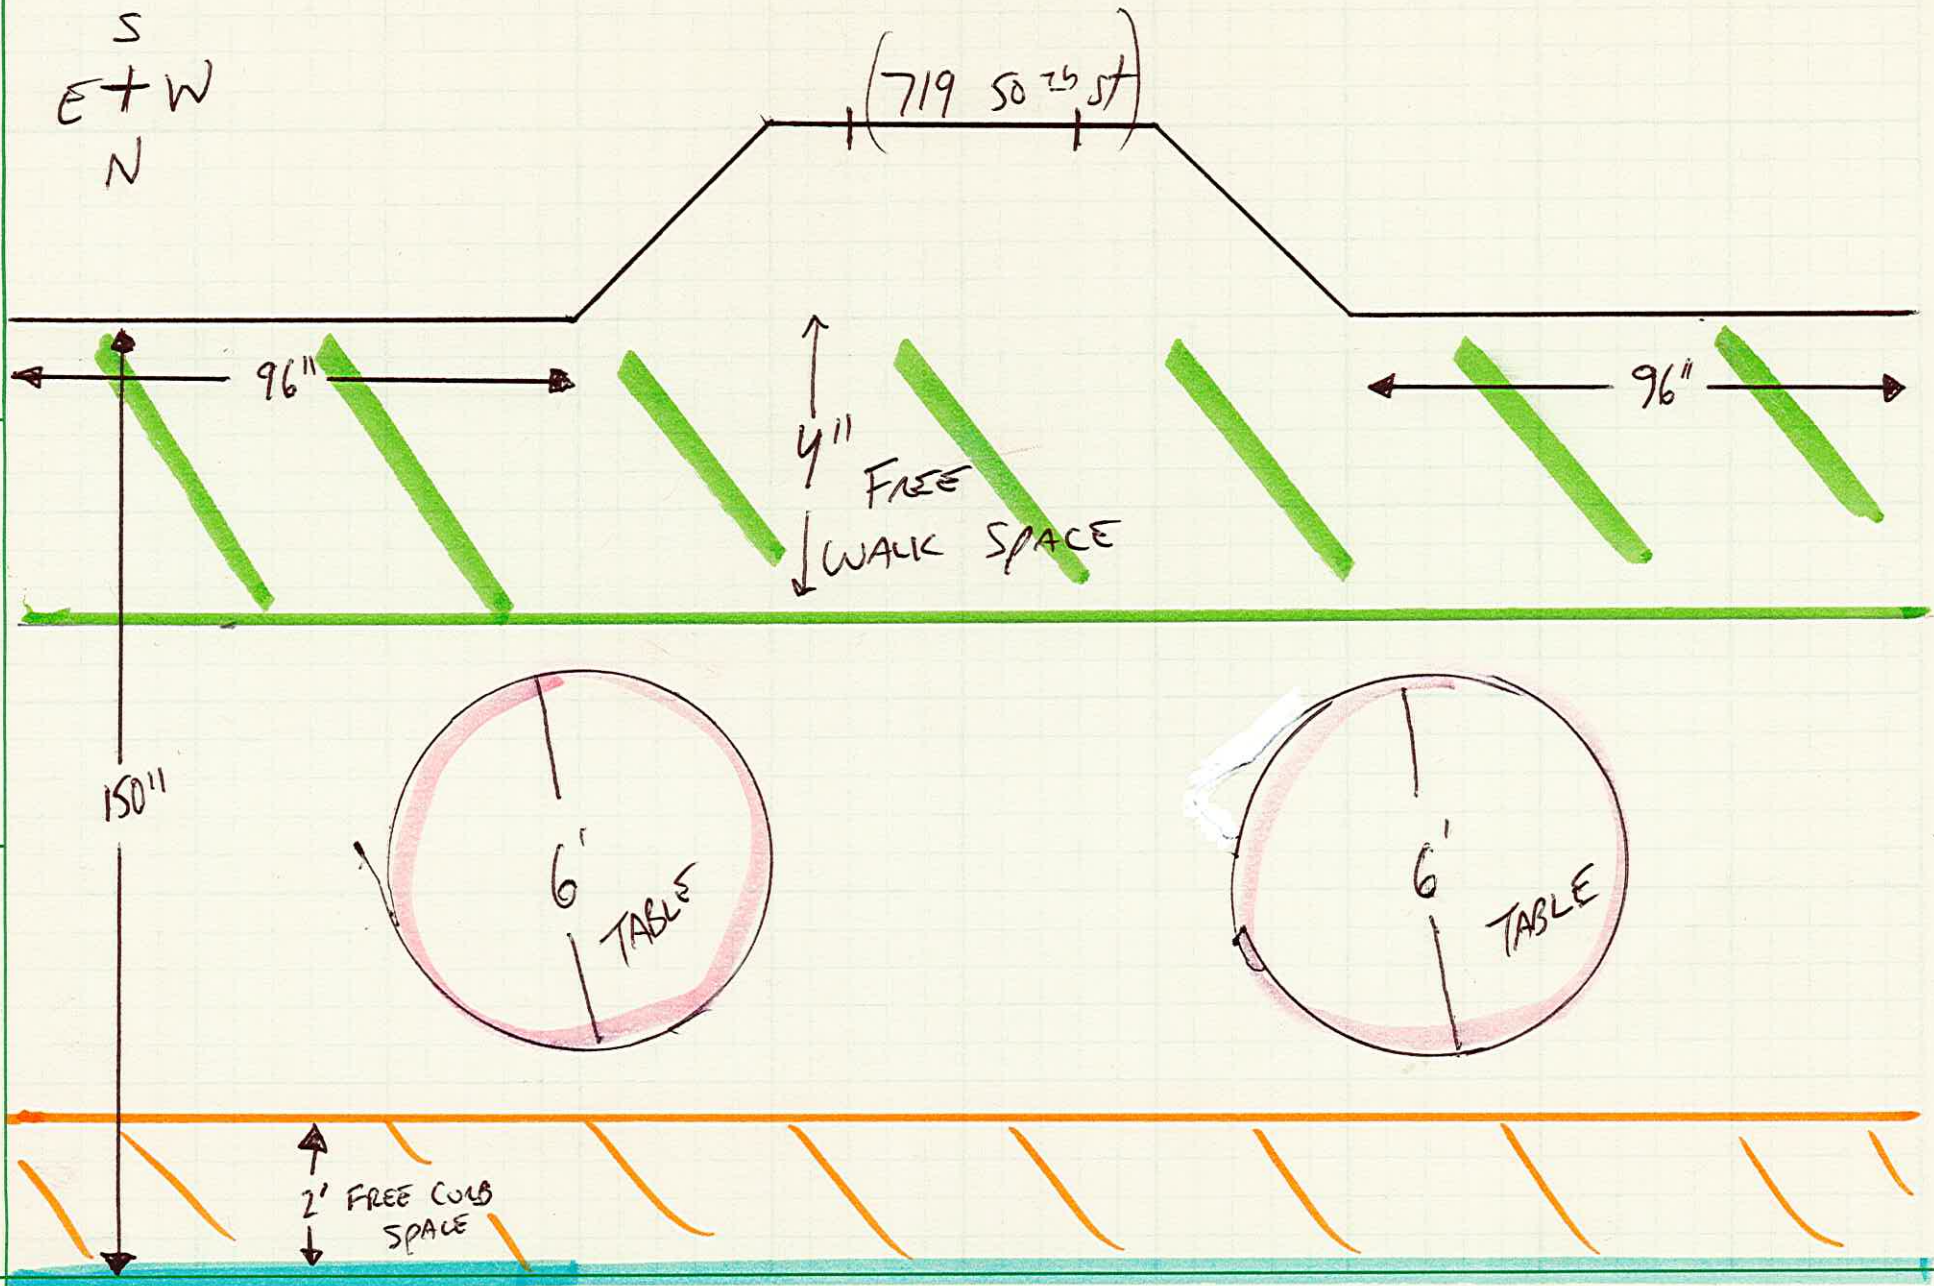 S
E + W
N
(719 50th st)
96"
96"
4"
FREE
WALK SPACE
150"
6'
TABLE
6'
TABLE
2' FREE CURB
SPACE